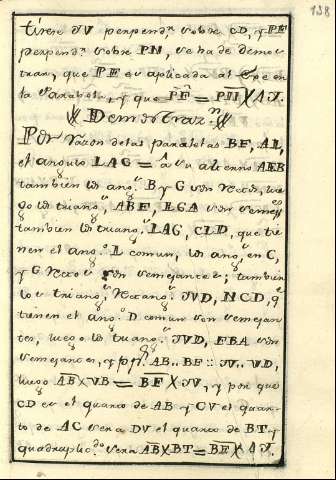 138
tirese IV perpend.r sobre CD, y PF
perpend.r sobre PN, se ha de demos
trar, que PF es aplicada al Exe en
la Parabola, y que PF² = PH × AI.
Demostraz.n
Por razon de las paralelas BF, AL,
el angulo LAG = à su alterno AEB
tambien los ang.s B y G son rectos, lue
go los triang.s ABF, LGA son semejes
tambien los triang.s LAG, CLD, que tie
nen el ang.o L comun, los ang.s en C,
y G rectos son semejantes; tambien
los triang.s rectang.s IVD, NCD, q̃
tienen el ang.o D comun son semejan
tes, luego los triang.s IVD, FBA son
semejantes, y AB .. BF :: IV .. VD,
luego AB × VB = BF × IV, y por que
CD es el quarto de AB y CV el quar
to de AC sera DV el quarto de BT, y
quadruplic.do sera AB × BT = BF × AI.